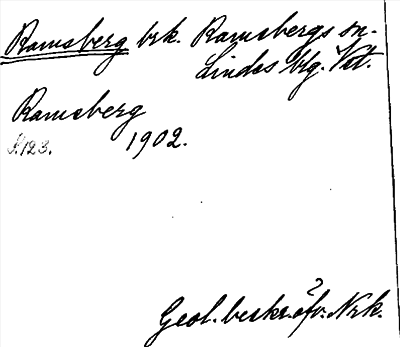 Ramsberg brk. Ramsbergs sn.
Lindes blg. Vstl.
Ramsberg
S. 123. 1902.
Geol. beskr. öfv. Nrk.